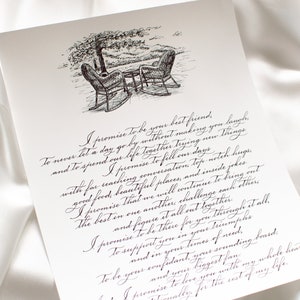 I promise to be your best friend,
to never let a day go by without making you laugh
and to spend our life together trying new things.
I promise to fill our days
with far reaching conversation, top with hugs,
good food, beautiful places and inside jokes
I promise that we will continue to bring out
the best in one another, challenge each other,
and figure it all out together.
I promise to be there for you through it all
to support you in your triumphs
and in your times of need,
To be your confidant, your sounding board,
and your biggest fan.
I promise to love you with my whole
for the rest of my life.